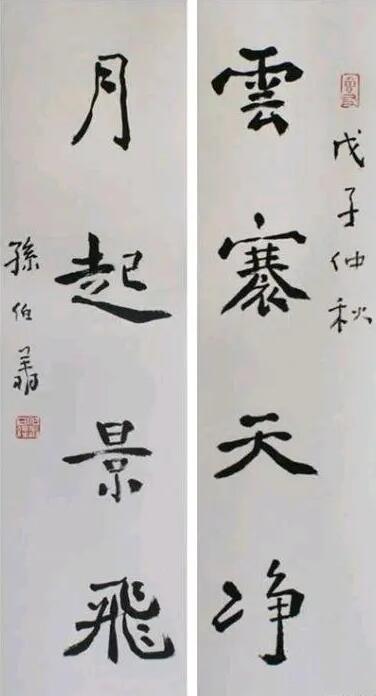 戊子仲秋
雲褰天净
月起景飛
孫伯翔